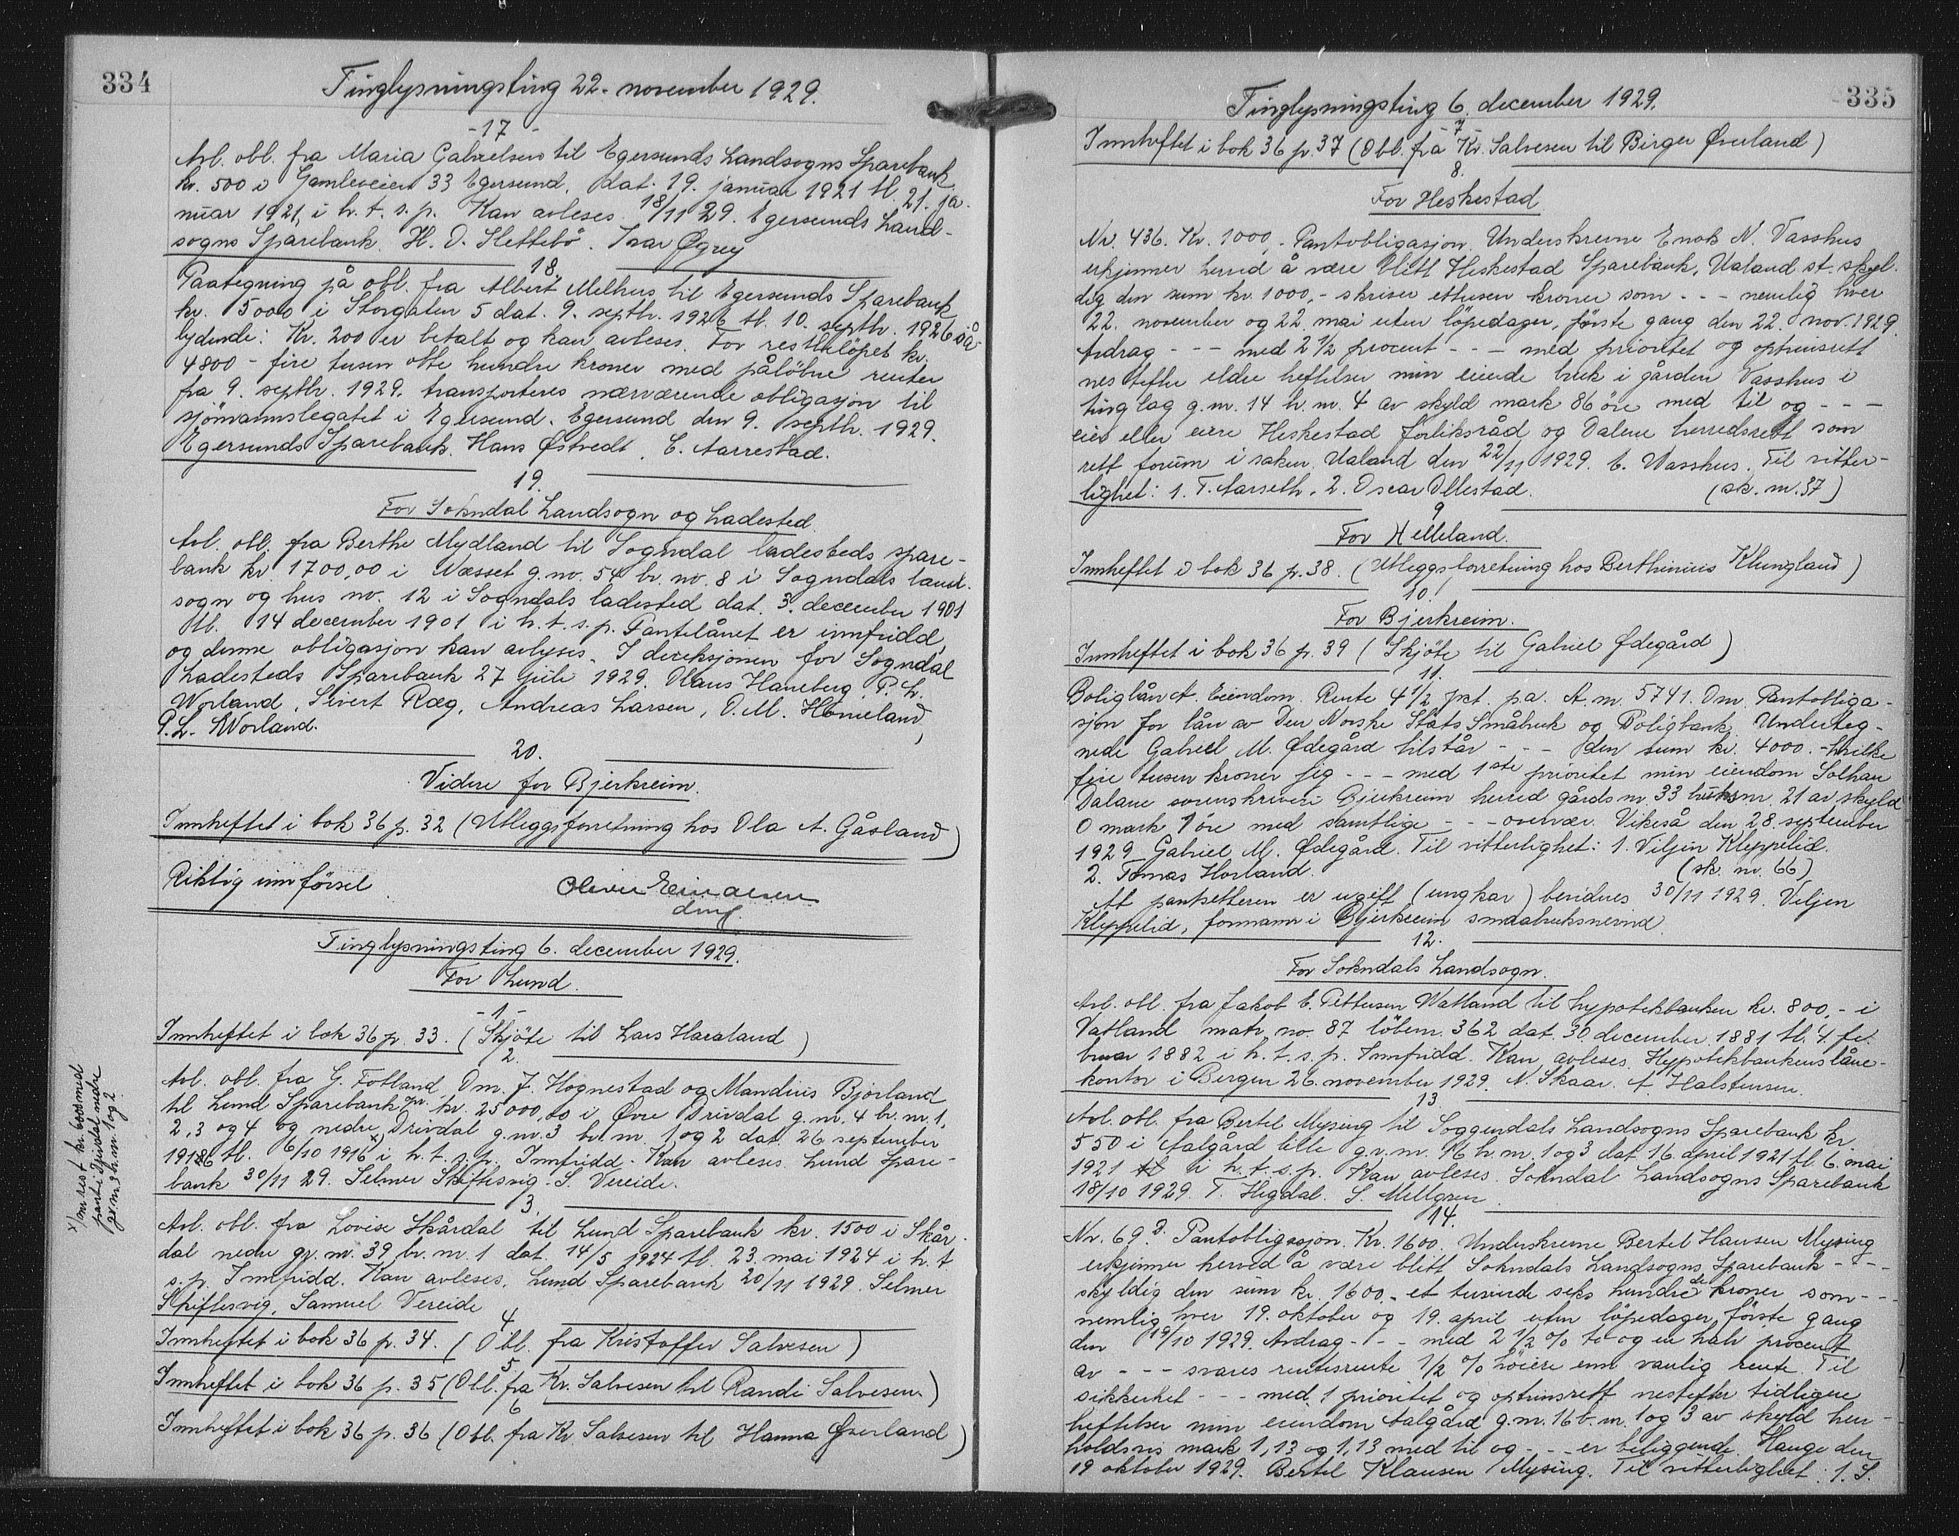 334
Tinglysningsting 22. november 1929.
-17-
Avl. obl. fra Maria Gabrielsen til Egersunds Landsogns Sparebank
kr. 500 i Gamleveien 33 Egersund, dat. 19. januar 1921 tl. 21. ja-
nuar 1921 i h. t. s. p. Kan avleses. 18/11 29. Egersunds Land-
sogns Sparebank. H. D. Slettebö. Ivar Øgrey
18.
Paategning på obl. fra Albert Melhus til Egersunds Sparebank
kr. 5000 i Storgaten 5 dat. 9. septbr. 1926 tl. 10. septbr. 1926 så-
lydende: Kr. 200 er betalt og kan avleses. For restbelöpet kr.
4800 - fire tusen otte hundre kroner med pålöbne renter
fra 9. septbr. 1929. transporteres nærværende obligasjon til
sjömannslegatet i Egersund. Egersund den 9. septbr. 1929.
Egersunds Sparebank. Hans Østvedt. E. Aarrestad.
19.
For Sokndal Landsogn og Ladested.
Avl. obl. fra Berthe Mydland til Sogndal ladesteds spare-
bank kr. 1700,00 i Wæsset g. no. 54 br. no. 8 i Sogndals land-
sogn og hus no. 12 i Sogndals ladested dat. 3. december 1901
tl. 14 december 1901 i h. t. s. p. Pantelånet er innfridd,
og denne obligasjon kan avlyses. I direksjonen for Sogndal
Ladesteds Sparebank 27 juli 1929. Hans Haneberg. P. L.
Worland, Sivert Ræg, Andreas Larsen, O. M. Homeland,
P. L. Worland.
20.
Videre for Bjerkreim.
Innheftet i bok 36 p. 32 (Utleggsforretning hos Ola A. Gåsland)
Riktig innförsel
Oliver Einarsen
Tinglysningsting 6. december 1929.
For Lund.
-1-
Innheftet i bok 36 p. 33. (Skjöte til Lars Haraland)
2.
Avl. obl. fra G. Fotland, Om. J. Hognestad og Mandius Bjorland
til Lund Sparebank kr. 25000,00 i Øvre Drivdal g. nr. 4 br. nr. 1,
2, 3 og 4 og nedre x) Drivdal g. nr. 3 br. nr. 1 og 2 dat. 26 september
1916 tl. 6/10 1916 i h. t. s. p. Innfridd. Kan avleses. Lund Spare-
bank 30/11 29. Selmer Skiftesvig. S. Vereide.
x) pant i Drivdal nedre
gr. nr. 3 br. nr. 1 og 2
3.
Avl. obl. fra Lovise Skårdal til Lund Sparebank kr. 1500 i Skår-
dal nedre gr. nr. 39 br. nr. 1 dat. 14/5 1924 tl. 23. mai 1924 i h. t.
s. p. Innfridd. Kan avleses. Lund Sparebank 20/11 1929. Selmer
Skiftesvig. Samuel Vereide
4
Innheftet i bok 36 p. 34. (Obl. fra Kristoffer Salvesen)
5.
Innheftet i bok 36 p. 35 (Obl. fra Kr. Salvesen til Randi Salvesen)
6
Innheftet i bok 36 p. 36 (Obl. fra Kr. Salvesen til Hanna Øverland)
335
Tinglysningsting 6. december 1929.
-7-
Innheftet i bok 36 p. 37 (Obl. fra Kr. Salvesen til Birger Øverland)
8.
For Heskestad
Nr. 436. Kr. 1000,- Pantobligasjon. Underskrevne Enok N. Vasshus
erkjenner herved å være blitt Heskestad Sparebank, Ualand st. skyl-
dig den sum kr. 1000,- skriver ettusen kroner som - - - nemlig hver
22. november og 22. mai uten löpedager, förste gang den 22. nov. 1929.
Avdrag - - - med 2 1/2 procent - - - med prioritet og optrinsrett
nestefter eldre heftelser min eiende bruk i gården Vasshus i
tinglag g. nr. 14 br. nr. 4 av skyld mark 86 öre med til og - - -
eier eller eiere Heskestad forliksråd og Dalene herredsrett som
rett forum i saken. Ualand den 22/11 1929. E. Wasshus. Til vitter-
lighet: 1. T. Aarseth. 2. Oscar Ollestad. (sk. nr. 37)
9
For Helleland.
Innheftet i bok 36 p. 38. (Utleggsforretning hos Berthinius Klungland)
10.
For Bjerkreim.
Innheftet i bok 36 p. 39 (Skjöte til Gabriel Ødegård)
11.
Boliglån A Eiendom. Rente 4 1/2 pct. p.a. A. nr. 5741. Om. Pantobliga-
sjon for lån av Den Norske Stats Småbruk og Boligbank. Underteg-
nede Gabriel M. Ødegård tilstår - - - den sum kr. 4000.- hvilke
fire tusen kroner jeg - - - med 1ste prioritet min eiendom Solhau
Dalane sorenskriveri Bjerkreim herred gårds nr. 33 bruksnr. 21 av skyld
0 mark 1 öre med samtlige - - - overvær. Vikeså den 28. september
1929. Gabriel M. Ødegård. Til vitterlighet: 1. Viljen Kleppelid.
2. Tomas Horland. (sk. nr. 66)
At pantsetteren er ugift (ungkar) bevidnes 30/11 1929. Viljen
Kleppelid, formann i Bjerkreim smaabruksnevnd.
12.
For Sokndals Landsogn.
Avl. obl. fra Jakob E. Pettersen Watland til hypotekbanken kr. 800,- i
Vatland matr. no. 87 löbenr. 362 dat. 30. december 1881 tl. 4. fe-
bruar 1882 i h. t. s. p. Innfridd. Kan avleses. Hypotekbankens låne-
kontor i Bergen 26. november 1929. N. Skaar. A. Halstensen.
13
Avl. obl. fra Bertel Mysing til Soggendals Landsogns Sparebank kr.
550 i Aalgård lille g. nr. 16 br. nr. 1 og 3 dat. 16 april 1921 tl. 6. mai
1921 i h. t. s. p. Kan avleses. Sokndal Landsogns Sparebank
18/10 1929. T. Hegdal. S. Mellgren
14.
Nr. 69 d. Pantobligasjon. Kr. 1600. Underskrevne Bertel Hansen Mysing
erkjenner herved å være blitt Sokndals Landsogns Sparebank - - -
skyldig den sum kr. 1600.- et tusinde seks hundrede kroner som - - -
nemlig hver 19. oktober og 19. april uten löpedager, förste gang
den 19/10 1929. Avdrag - - - med 2 1/2 % to og en halv procent
av - - - svares rentesrente 1/2 % höiere enn vanlig rente. Til
sikkerhet - - - med 1 prioritet og optrinsrett nestefter tidligere
heftelser min eiendom Aalgård g. nr. 16 b. nr. 1 og 3 av skyld hen-
holdsvis mark 1,13 og 1,13 med til og - - - er beliggende. Hauge den
19 oktober 1929. Bertel Klausen Mysing. Til vitterlighet: 1. S.